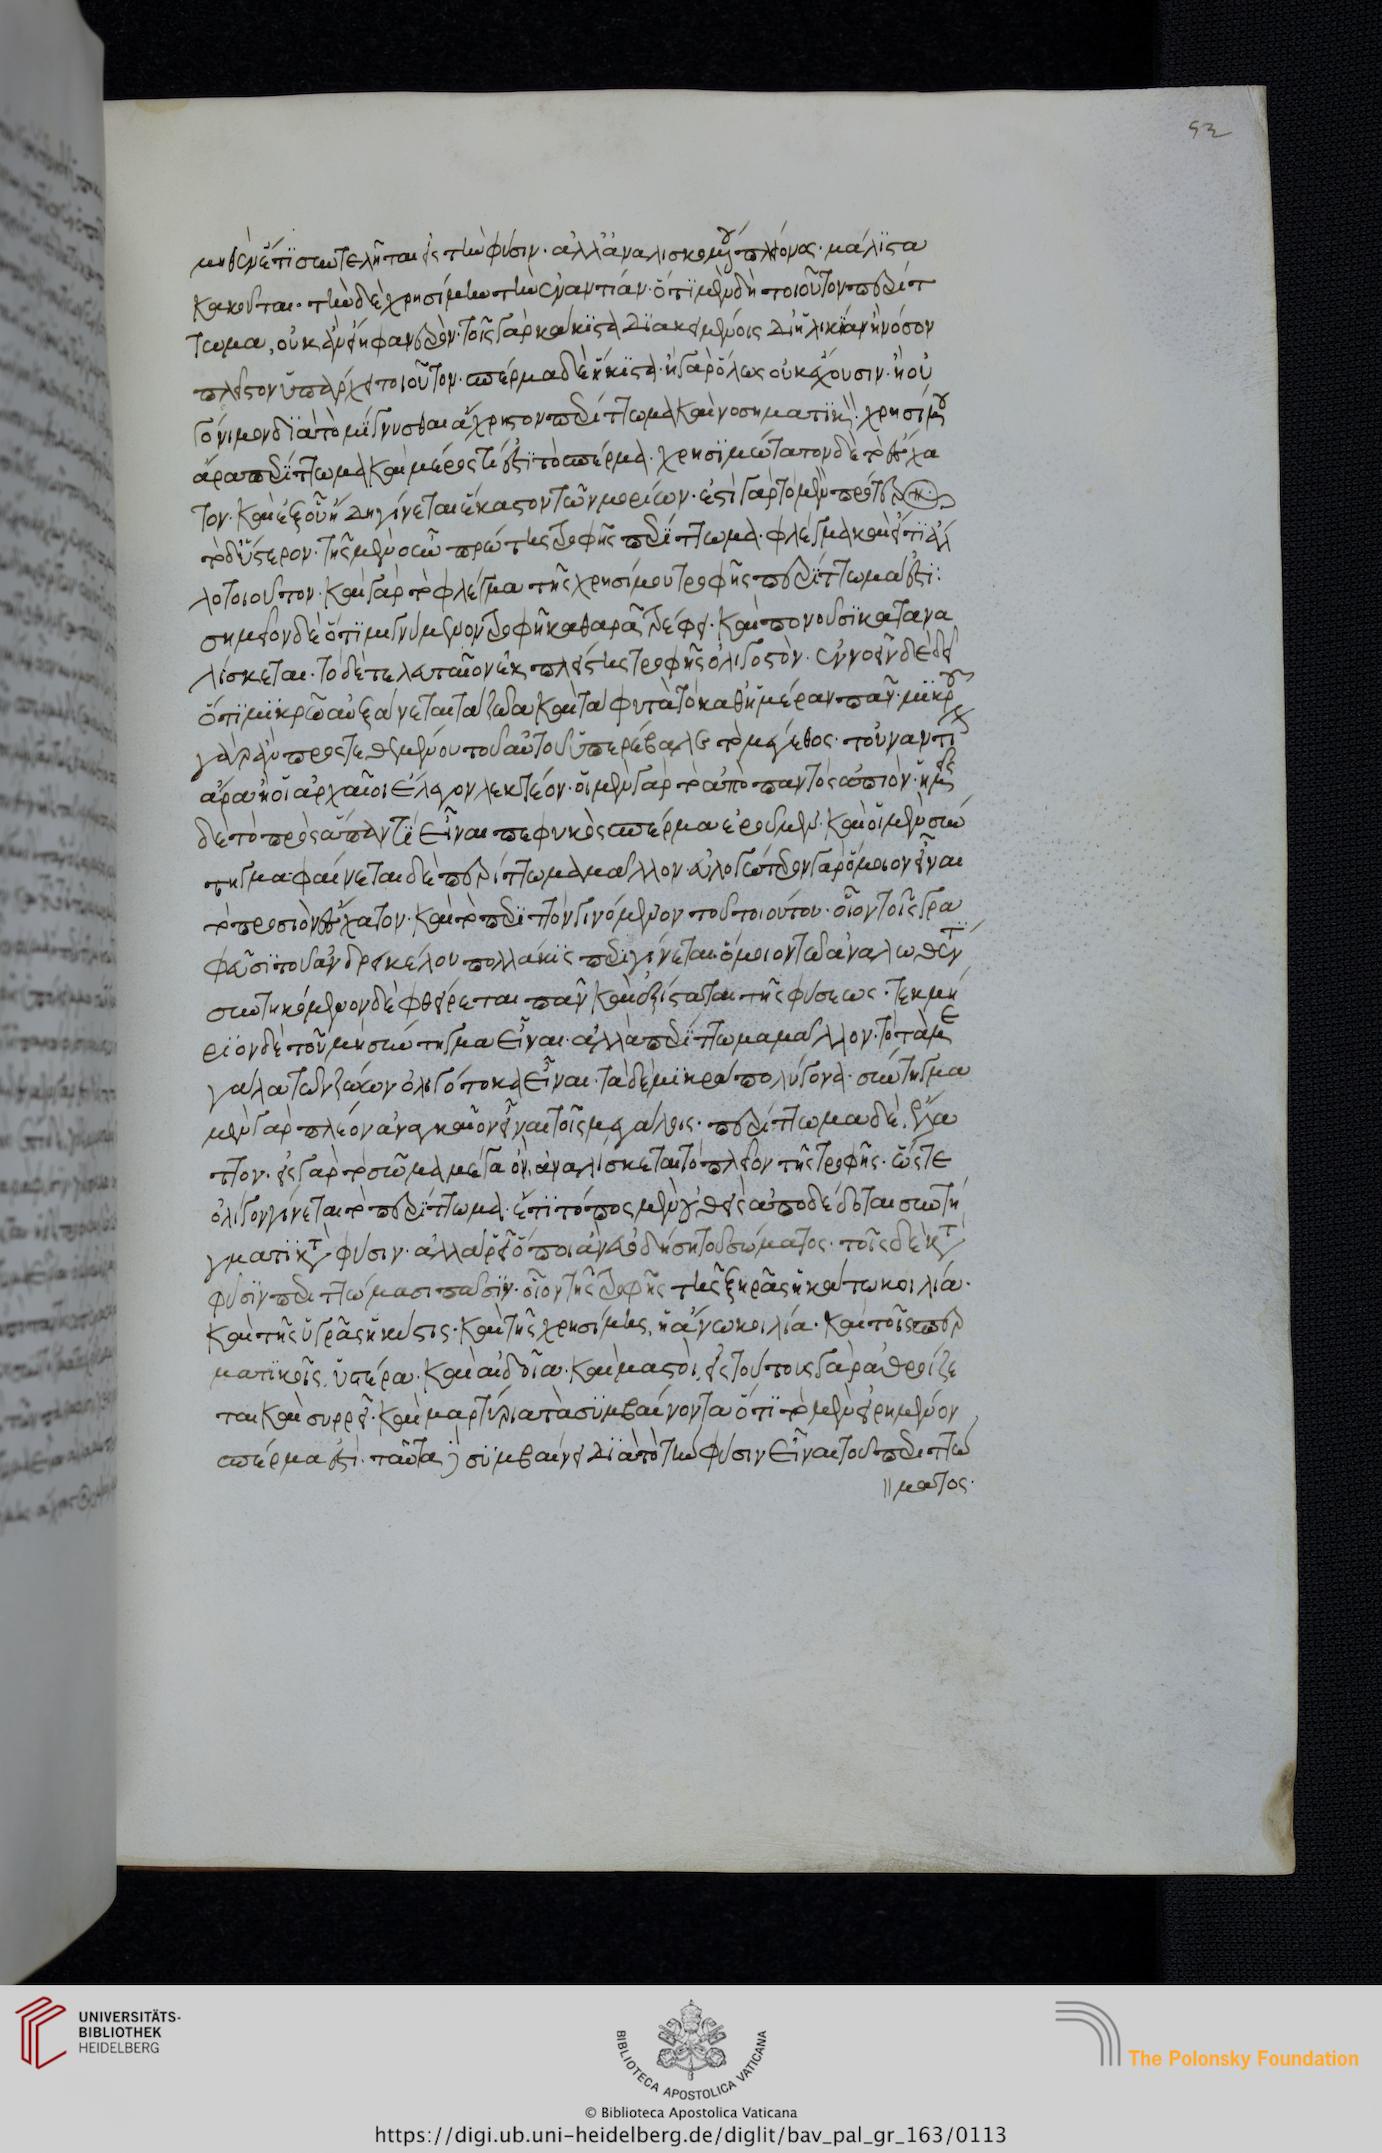 52
μηδὲν ἔτι συντελῆται εἰς τὴν φύσιν. ἀλλ' ἀναλισκομένου πλείονος. μάλιστα
κακοῦται. τὴν δὲ χρησίμην τὴν ἐναντίαν. ὅτι μὲν δὴ τοιοῦτον περίτ
τωμα, οὐκ ἀεὶ φανερόν. τοῖς γὰρ κάκιστα διακειμένοις δι' ἡλικίαν ἢ νόσον
πλεῖστον ὑπάρχει τοιοῦτον. σπέρμα δὲ ἥκιστα. ἢ γὰρ ὅλως οὐκ ἔχουσιν. ἢ οὐ
γόνιμον διὰ τὸ μίγνυσθαι ἄχρηστον περίττωμα καὶ νοσηματικόν. χρησίμου
ἄρα περίττωμα καὶ μέρος τί ἐστι τὸ σπέρμα. χρησιμώτατον δὲ τὸ ἔσχα
τον. καὶ ἐξ οὗ ἤδη γίνεται ἕκαστον τῶν μορίων. ἐστὶ γὰρ τὸ μὲν πρότερον
τὸ δ' ὕστερον. τῆς μὲν οὖν πρώτης τροφῆς περίττωμα. φλέγμα καὶ εἴ τι ἄλ
λο τοιοῦτον. καὶ γὰρ τὸ φλέγμα τῆς χρησίμου τροφῆς περίττωμά ἐστι:
σημεῖον δὲ ὅτι μιγνύμενον τροφῇ καθαρᾷ τρέφει. καὶ πονοῦσι κατανα
λίσκεται. τὸ δὲ τελευταῖον ἐκ πλείστης τροφῆς ὀλίγοστον. ἐννοεῖν δὲ δεῖ
ὅτι μικρῷ αὐξάνεται τὰ ζῷα καὶ τὰ φυτὰ τὸ καθ' ἡμέραν πᾶν. μικροῦ
γὰρ ἂν προστιθεμένου τοῦ αὐτοῦ ὑπερέβαλε τὸ μέγεθος. τοὐναντίον
ἄρα ἢ οἱ ἀρχαῖοι ἔλεγον λεκτέον. οἱ μὲν γὰρ τὸ ἀπὸ παντὸς ἀπιὸν. ἡμεῖς
δὲ τὸ πρὸς ἅπαντ' ἰέναι πεφυκὸς σπέρμα ἐροῦμεν. καὶ οἱ μὲν συν
τηγμα. φαίνεται δὲ περίττωμα μᾶλλον. εὐλογώτερον γὰρ ὅμοιον εἶναι
τὸ προσιὸν ἔσχατον. καὶ τὸ περιττὸν γινόμενον τοῦ τοιούτου. οἷον τοῖς γρα
φεῦσι τοῦ ἀνδρεικέλου πολλάκις περιγίνεται ὅμοιον τῷ ἀναλωθέντι
συντηκόμενον δὲ φθείρεται πᾶν καὶ ἐξίσταται τῆς φύσεως. τεκμή
ριον δὲ τοῦ μὴ σύντηγμα εἶναι. ἀλλὰ περίττωμα μᾶλλον. τὸ τὰ με
γάλα τῶν ζῴων ὀλιγοτόκα εἶναι. τὰ δὲ μικρὰ πολύγονα. σύντηγμα
μὲν γὰρ πλέον ἀναγκαῖον εἶναι τοῖς μεγάλοις. περίττωμα δὲ, ἔλα
ττον. εἰς γὰρ τὸ σῶμα μέγα ὂν, ἀναλίσκεται τὸ πλεῖον τῆς τροφῆς. ὥστε
ὀλίγον γίνεται τὸ περίττωμα. ἔτι τόπος μὲν οὐθεὶς ἀποδέδοται συντή
γματι κατὰ φύσιν. ἀλλὰ ῥεῖ ὅποι ἂν εὐοδήσῃ τοῦ σώματος. τοῖς δὲ κατὰ
φύσιν περιττώμασι πᾶσιν. οἷον τῆς τροφῆς τῆς ξηρᾶς ἡ κάτω κοιλία.
καὶ τῆς ὑγρᾶς ἡ κύστις. καὶ τῆς χρησίμης, ἡ ἄνω κοιλία. καὶ τοῖς σπερ
ματικοῖς, ὑστέρα. καὶ αἰδοῖα. καὶ μαστοὶ, εἰς τούτους γὰρ ἀθροίζε
ται καὶ συρρεῖ. καὶ μαρτύρια τὰ συμβαίνοντα ὅτι τὸ μὲν εἰρημένον
σπέρμα ἐστί. ταῦτα δὲ συμβαίνει διὰ τὸ τὴν φύσιν εἶναι τοῦ περιττώ
ματος.
UNIVERSITÄTS-
BIBLIOTHEK
HEIDELBERG
BIBLIOTECA APOSTOLICA VATICANA
The Polonsky Foundation
© Biblioteca Apostolica Vaticana
https://digi.ub.uni-heidelberg.de/diglit/bav_pal_gr_163/0113